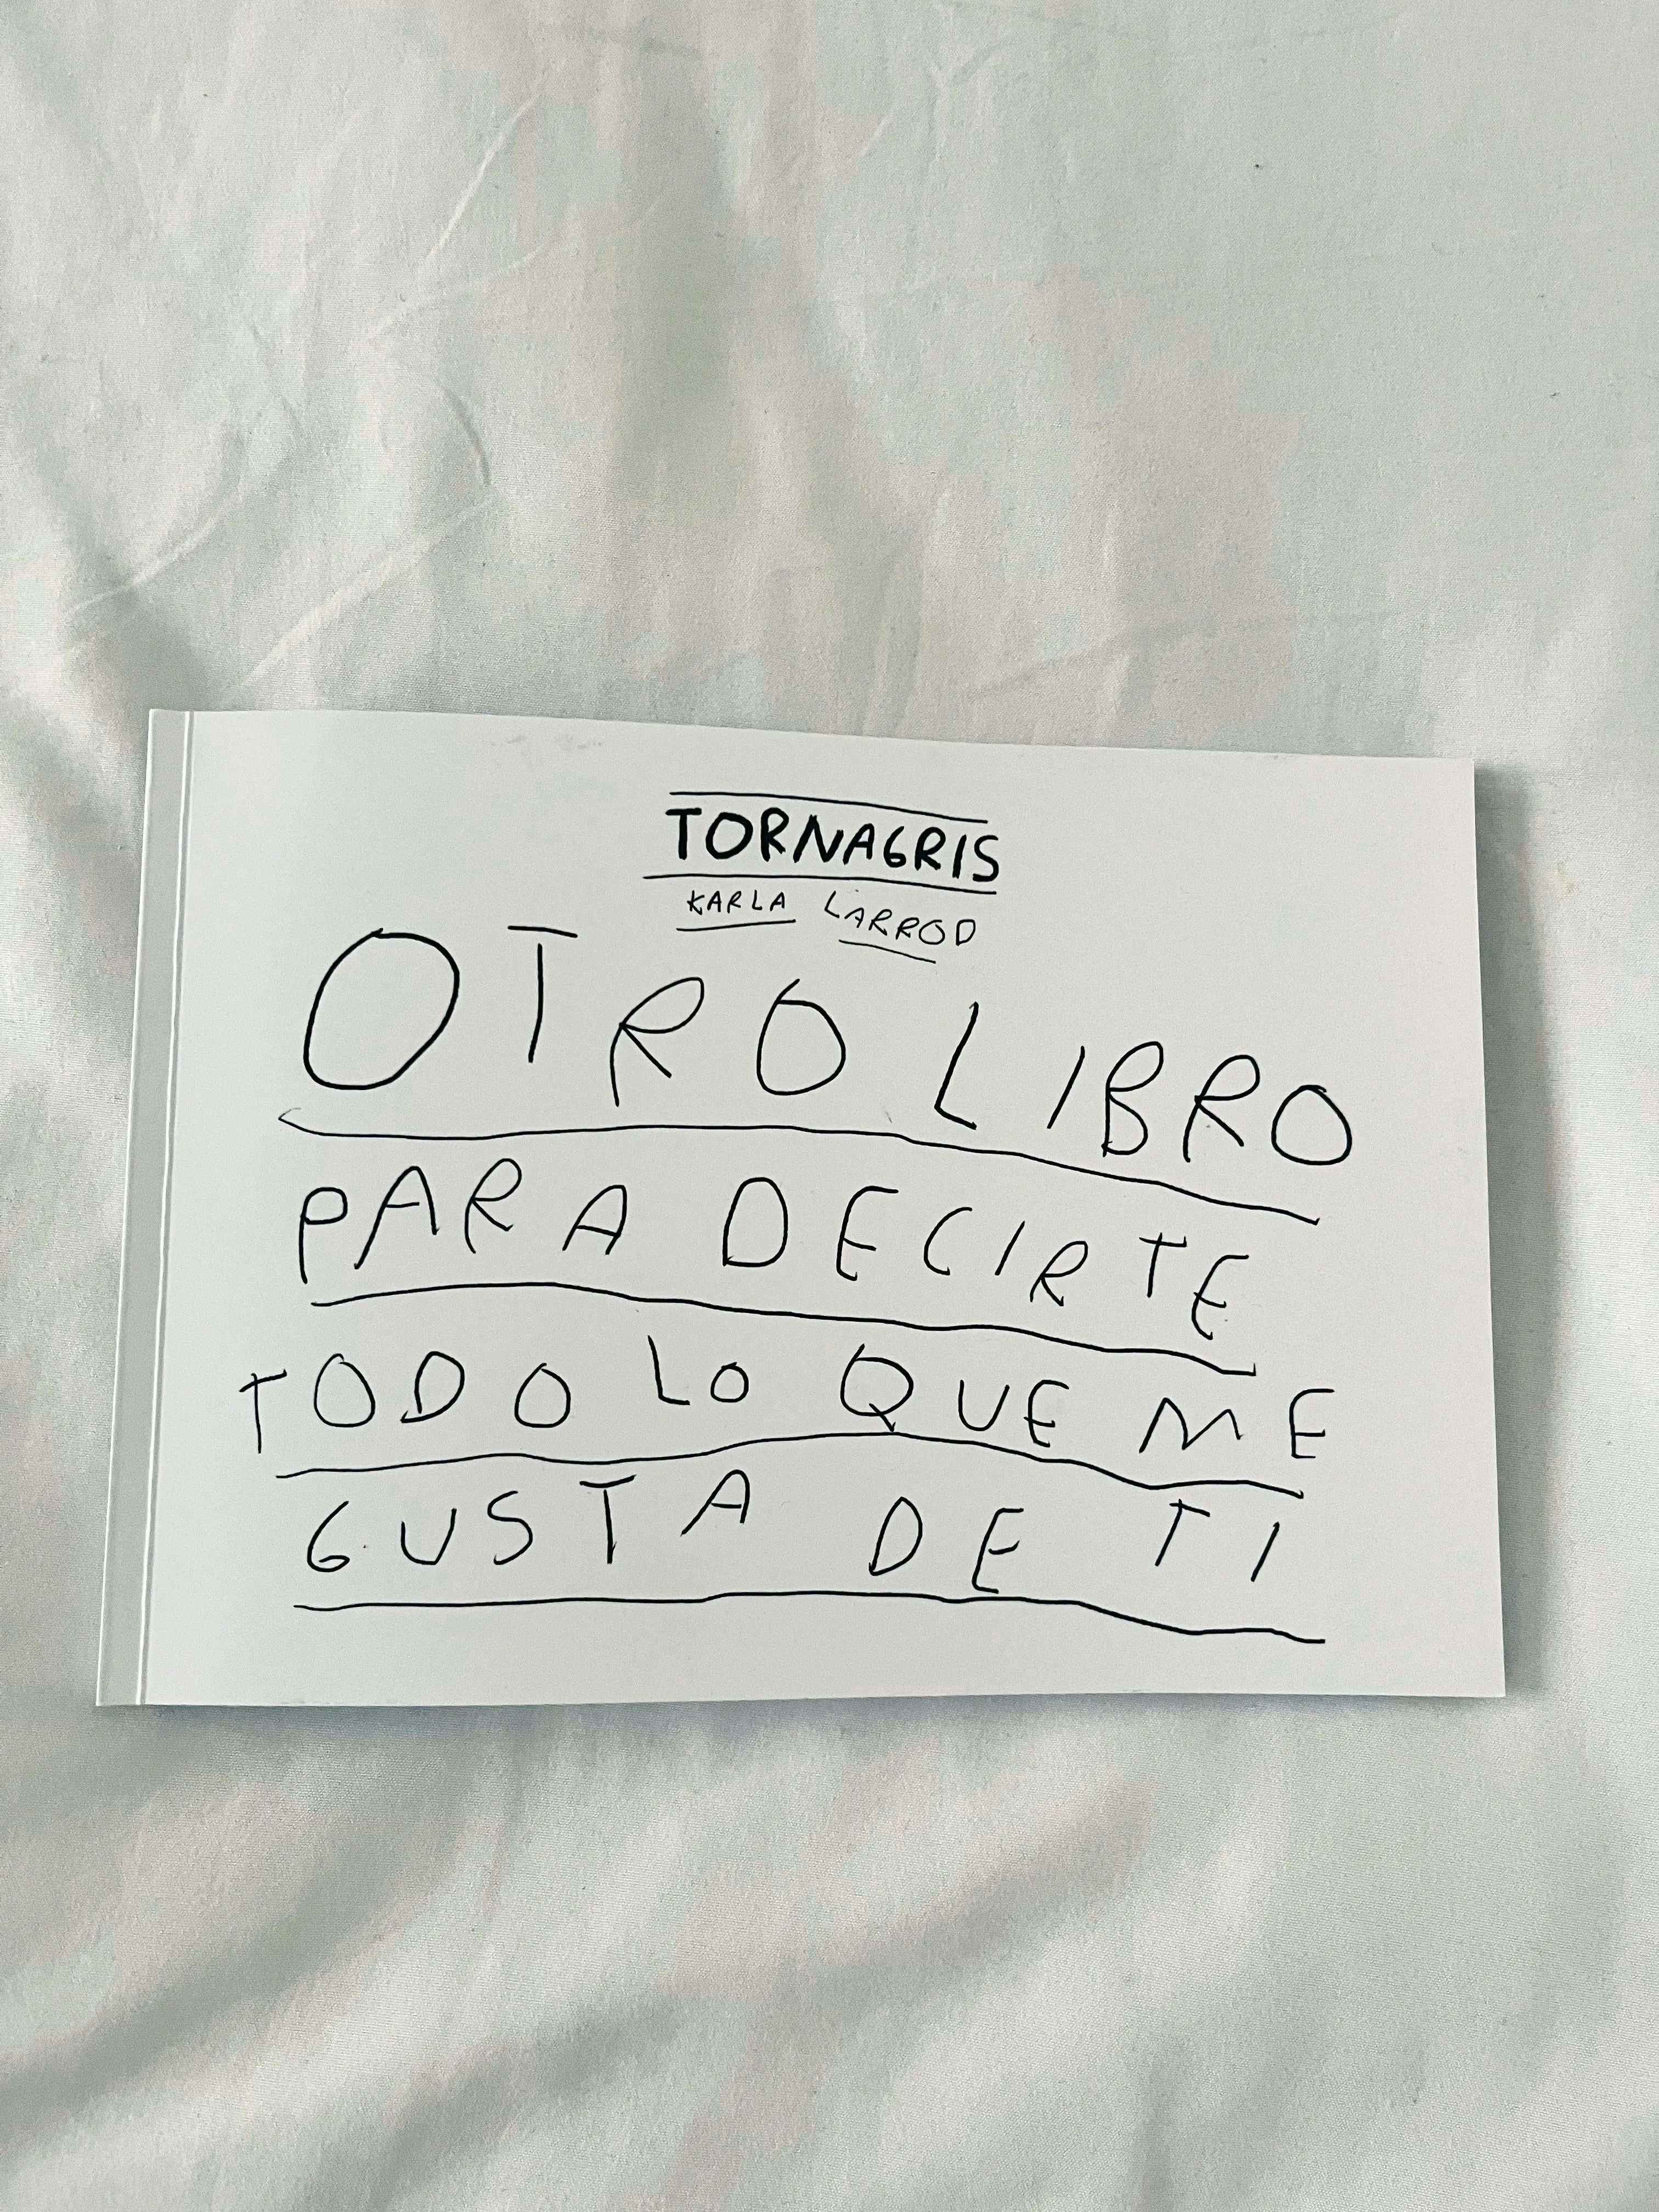 TORNAGRIS
KARLA LARROD
OTRO LIBRO
PARA DECIRTE
TODO LO QUE ME
GUSTA DE TI